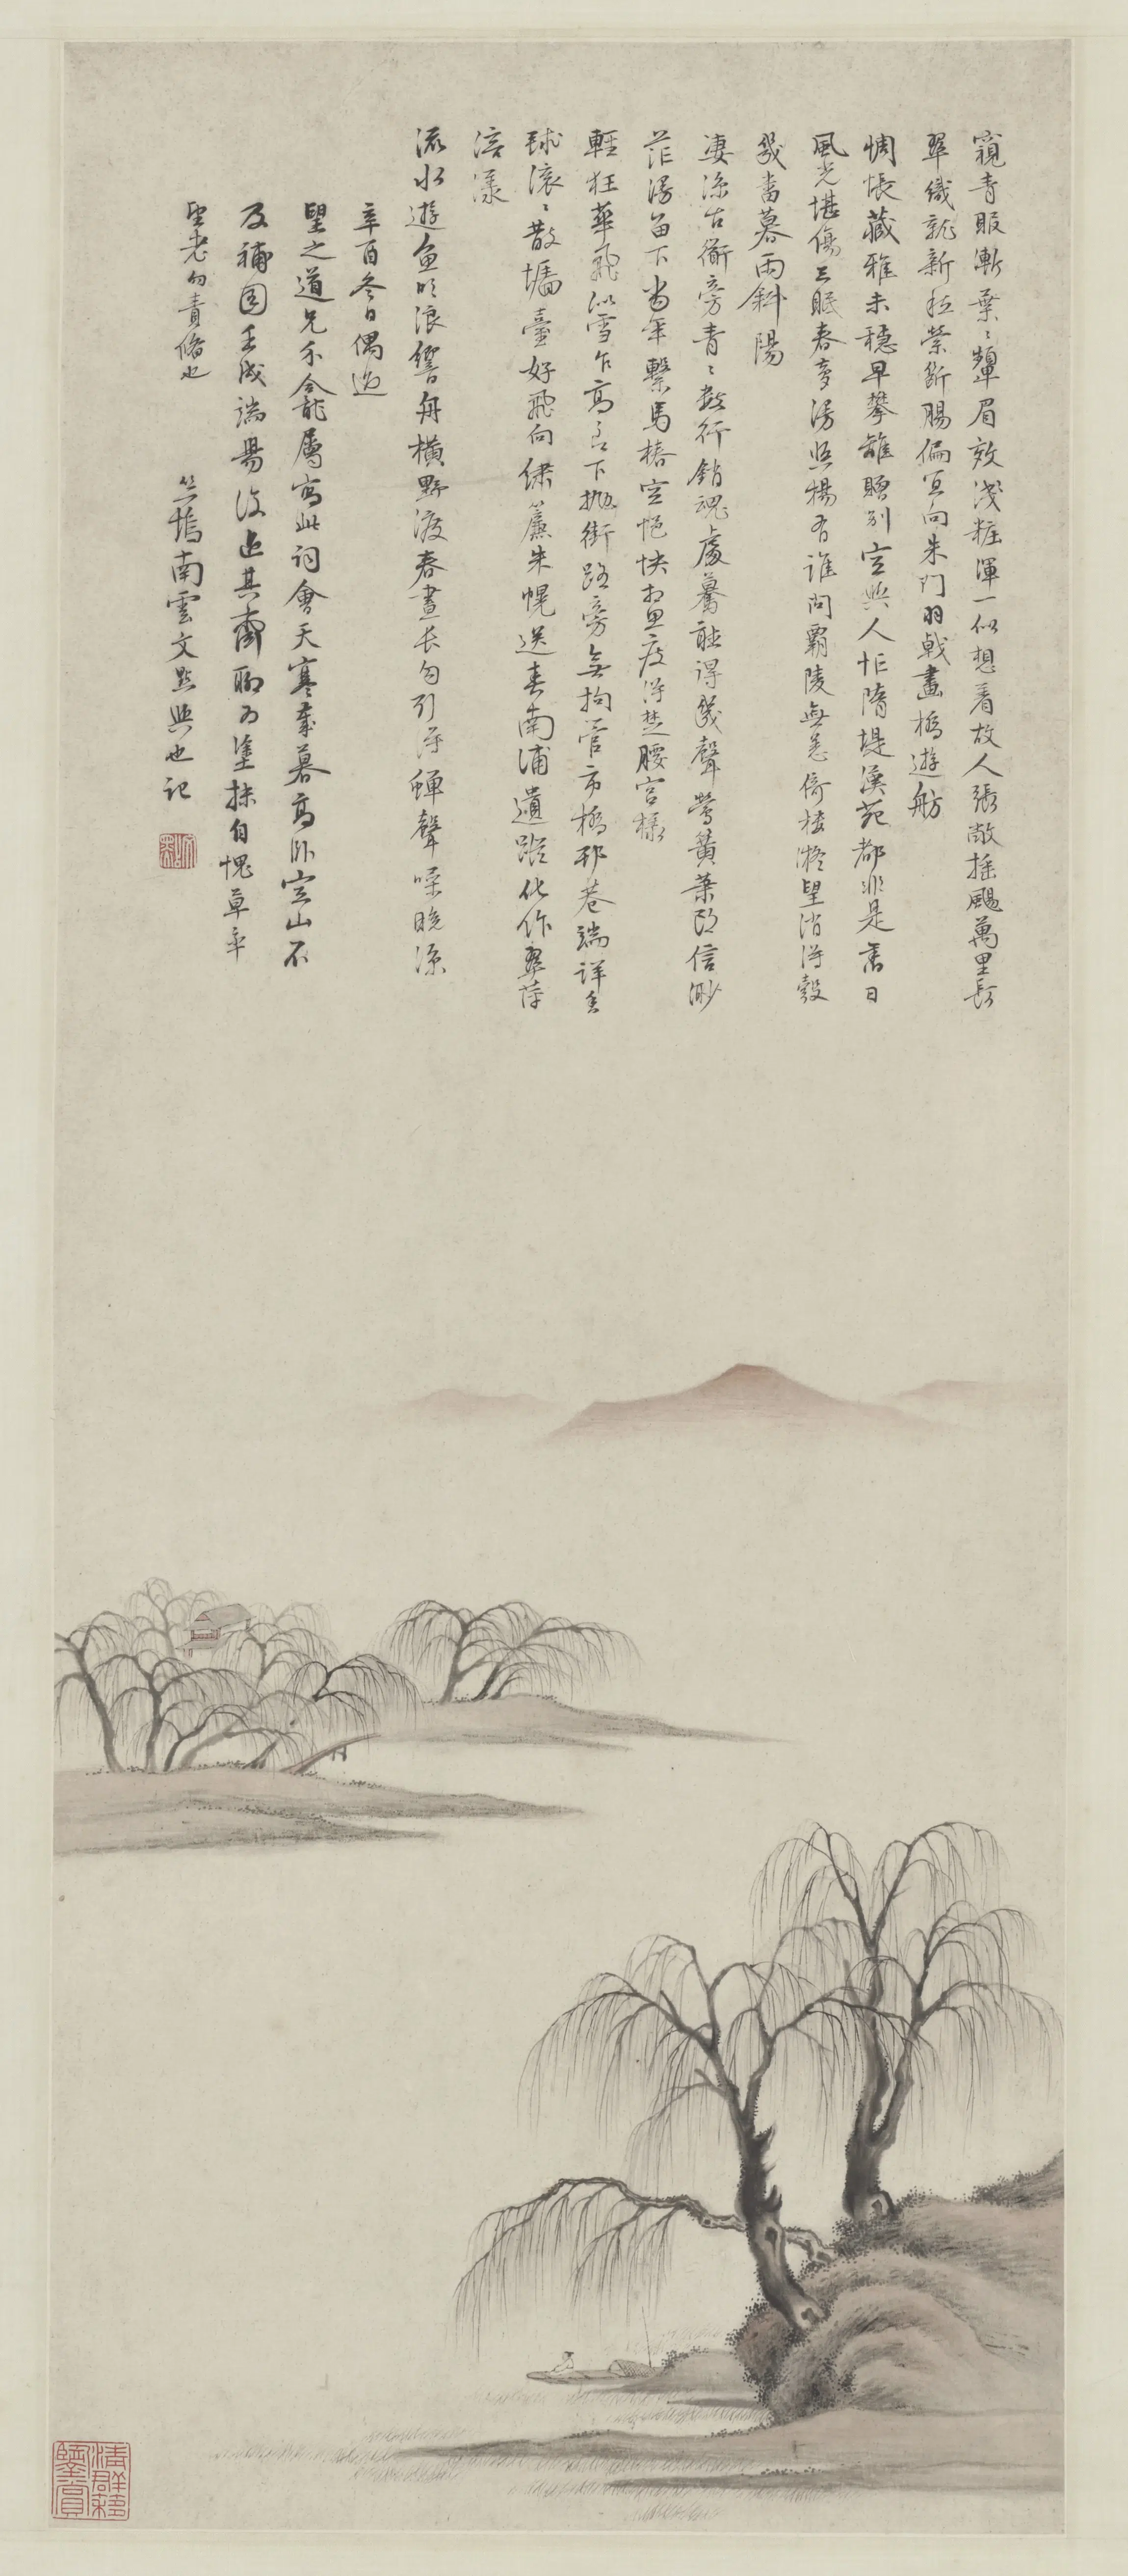 窺青眼漸葉〻顰眉效淺粧渾一似想着故人張敞搖颺萬里長
翠織就新□縈斷腸偏宜向朱門羽戟畫橋遊舫
惆悵藏雅未穩早攀離贈別空與人忙隋堤漢苑都非是舊日
風光堪傷三眠春夢湯□楊有誰問霸陵無恙倚樓凝望消得幾
幾番暮雨斜陽
淒涼古衟旁青〻數行銷魂處驀聽得幾聲鶯簧葉郎信渺
茫湯留下當年繫馬樁空悒怏相思瘦得楚腰宮樣
輕狂華飛似雪乍高乍下拋街路旁無拘管市橋邨巷端詳□
球滾〻散墻臺好飛向繡簾朱幌送春南浦遺蹤化作翠萍
溶漾
流水遊魚吹浪響舟橫野渡春晝長勾引得蟬聲噪晚涼
辛酉冬日偶過
望之道兄禾龕屬寫此詞會天寒歲暮高臥空山不
及補圖壬戌端易後過其齋聊為塗抹自愧草率
望老勿責偹也
竺塢南雲文點與也記
文點
潘群移
鑒賞